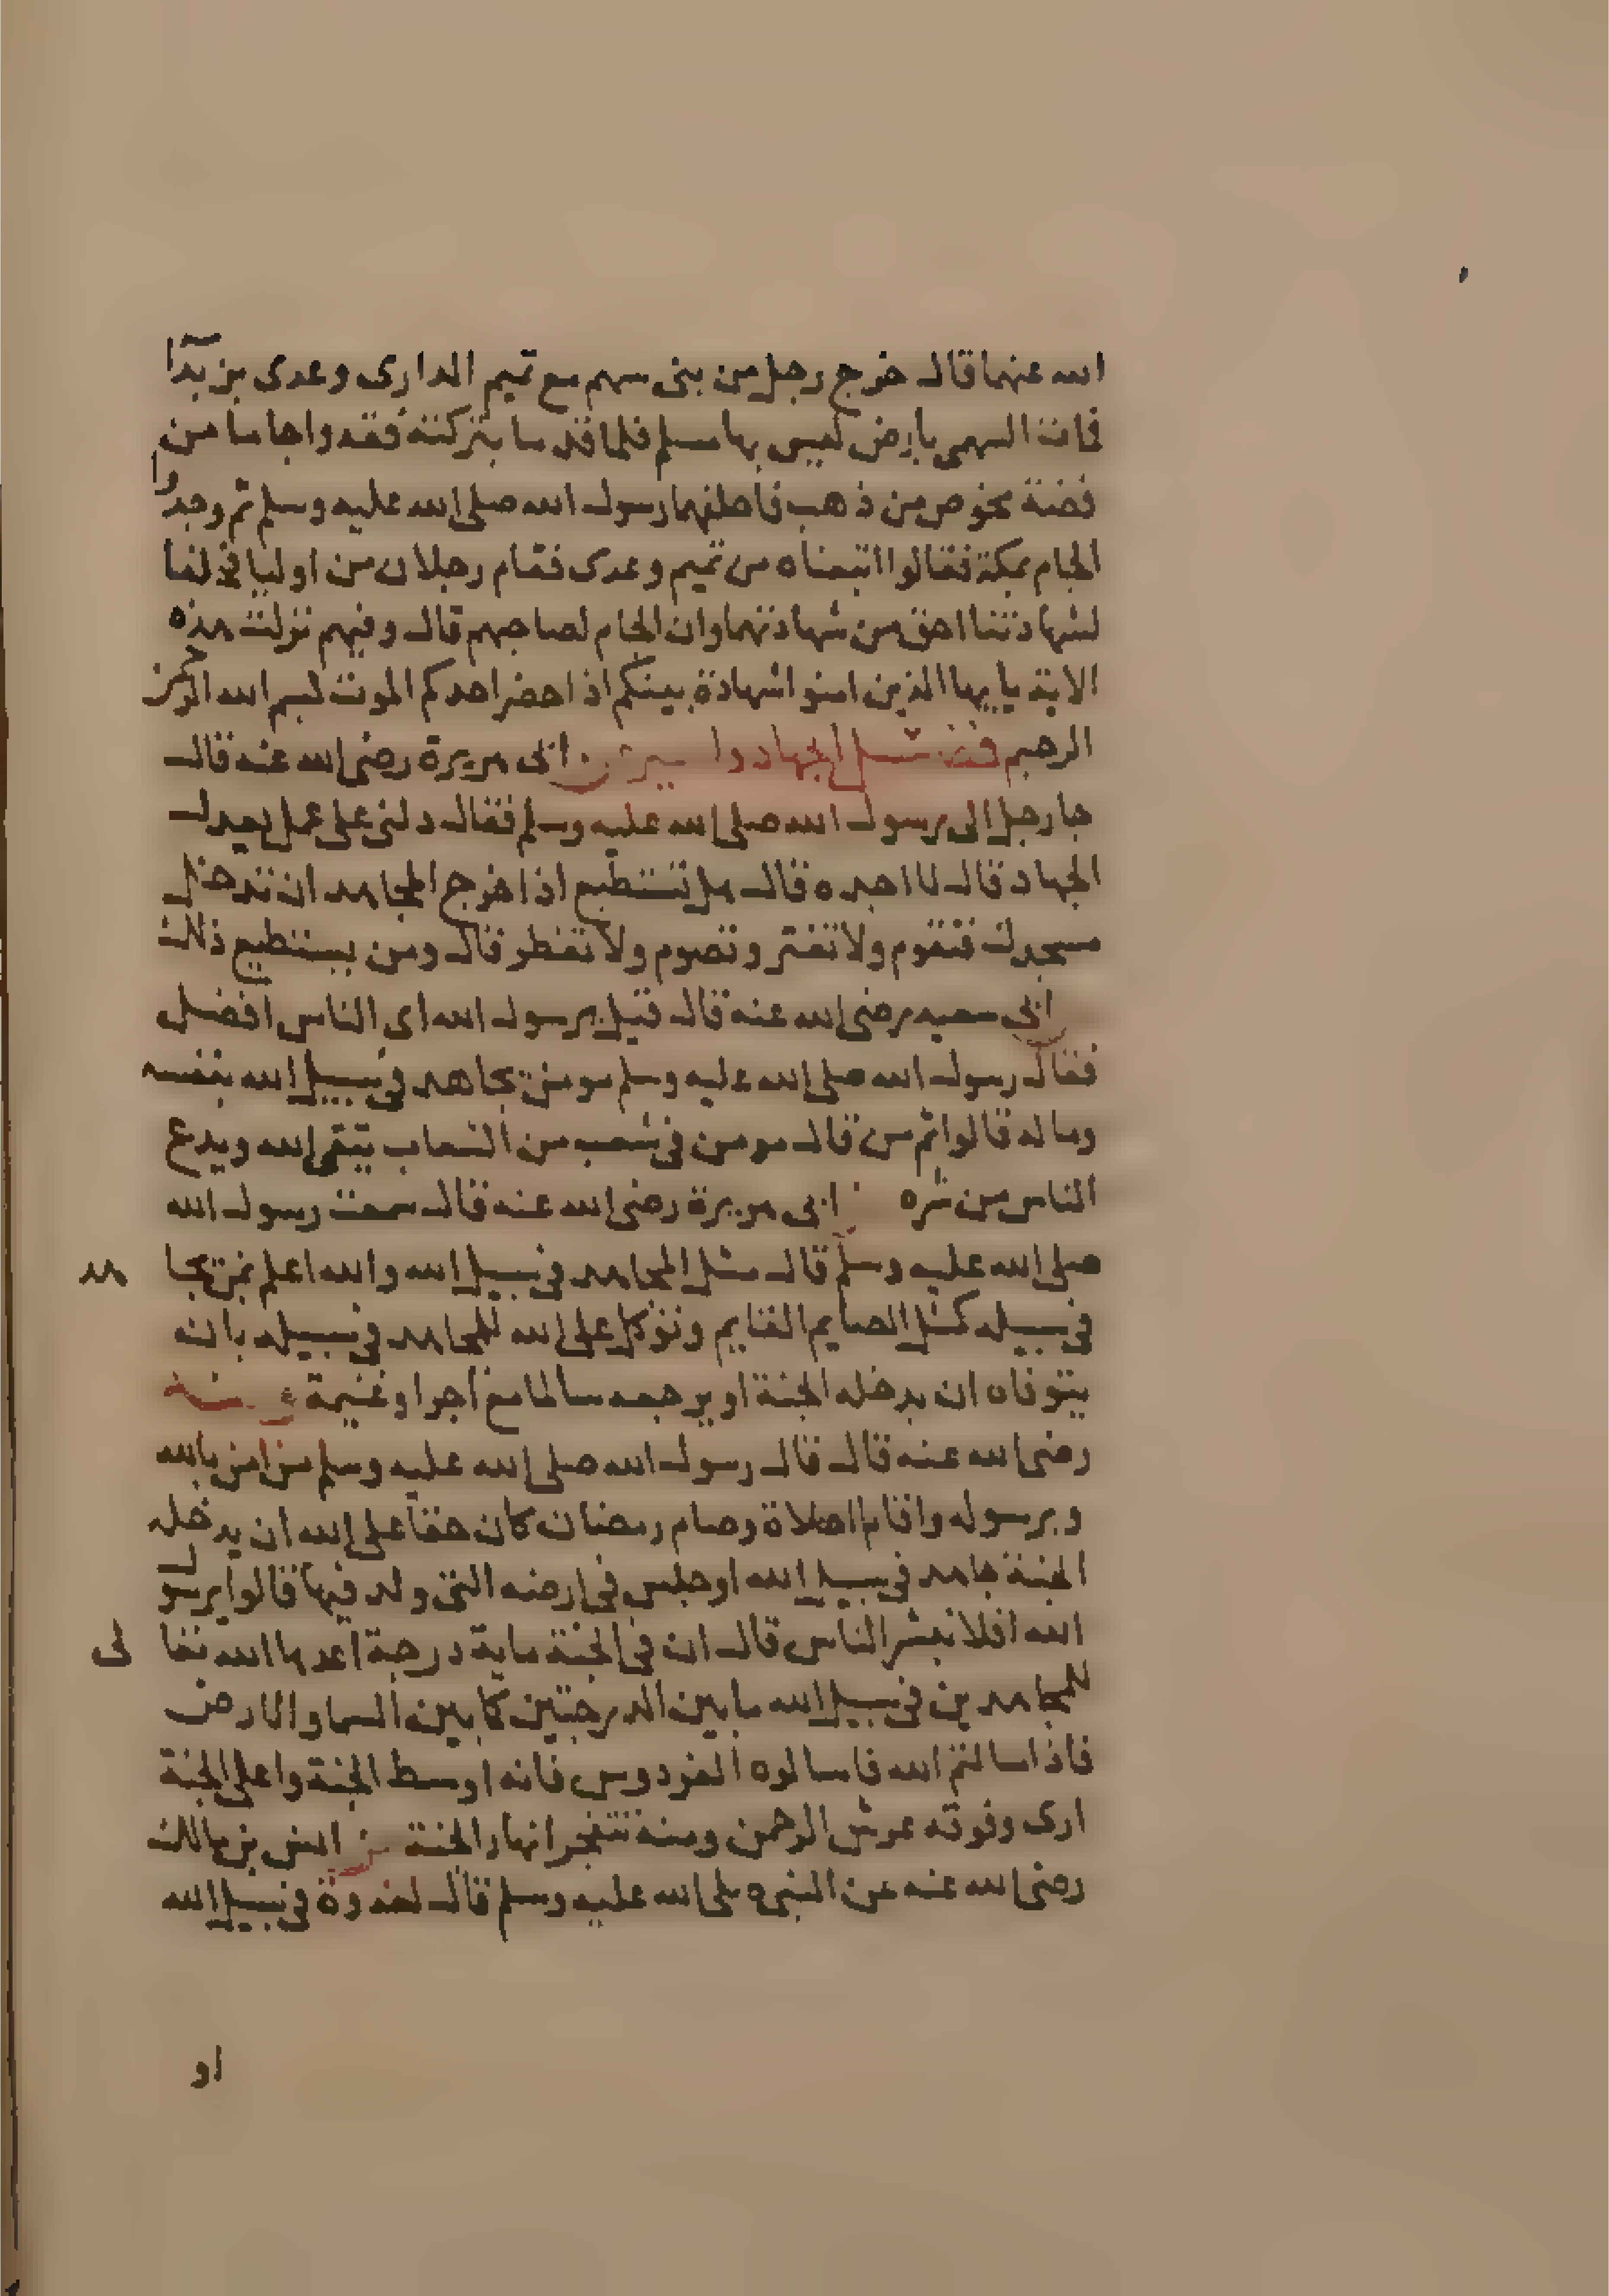 الله عنهما قال خرج رجل من بني سهم مع تميم الداري وعدي بن بدآ
فمات السهمي بارض ليس بها مسلم فلما قدما بتركته فقدوا جاما من
فضة مخوص من ذهب فاحلفهما رسول الله صلى الله عليه وسلم ثم وجدوا
الجام بمكة فقالوا ابتعناه من تميم وعدي فقام رجلان من اوليائه لفا
لشهادتنا احق من شهادتهما وان الجام لصاحبهم قال وفيهم نزلت هذه
الاية يايها الذين امنوا شهادة بينكم اذا حضر احدكم الموت بسم الله الرحمن
الرحيم فضل الجهاد والسير عن ابي هريرة رضي الله عنه قال
جا رجل الى رسول الله صلى الله عليه وسلم فقال دلني على عمل يعدل
الجهاد قال لا اجده قال هل تستطيع اذا خرج المجاهد ان تدخل
مسجدك فتقوم ولا تفتر وتصوم ولا تفطر قال ومن يستطيع ذلك
ابي سعيد رضي الله عنه قال قيل يرسول الله اي الناس افضل
فقال رسول الله صلى الله عليه وسلم مومن يجاهد في سبيل الله بنفسه
وماله قالوا ثم من قال مومن في شعب من الشعاب يتقي الله ويدع
الناس من شره ابي هريرة رضي الله عنه قال سمعت رسول الله
صلى الله عليه وسلم قال مثل المجاهد في سبيل الله والله اعلم بمن يجا هد
في سبيله كمثل الصايم القايم وتوكل على الله للمجاهد في سبيله بان
يتوفاه ان يدخله الجنة او يرجعه سالما مع اجر او غنيمة وعنه
رضي الله عنه قال قال رسول الله صلى الله عليه وسلم من امن بالله
وبرسوله واقام الصلاة وصام رمضان كان حقا على الله ان يدخله
الجنة جاهد في سبيل الله او جلس في ارضه التي ولد فيها قالوا يرسول
الله افلا نبشر الناس قال ان في الجنة ماية درجة اعدها الله تعا لى
للمجاهدين في سبيل الله ما بين الدرجتين كما بين السما والارض
فاذا سالتم الله فاسالوه الفردوس فانه اوسط الجنة واعلى الجنة
ارى وفوقه عرش الرحمن ومنه تتفجر انهار الجنة عن انس بن مالك
رضي الله عنه عن النبي صلى الله عليه وسلم قال لغدوة في سبيل الله
او